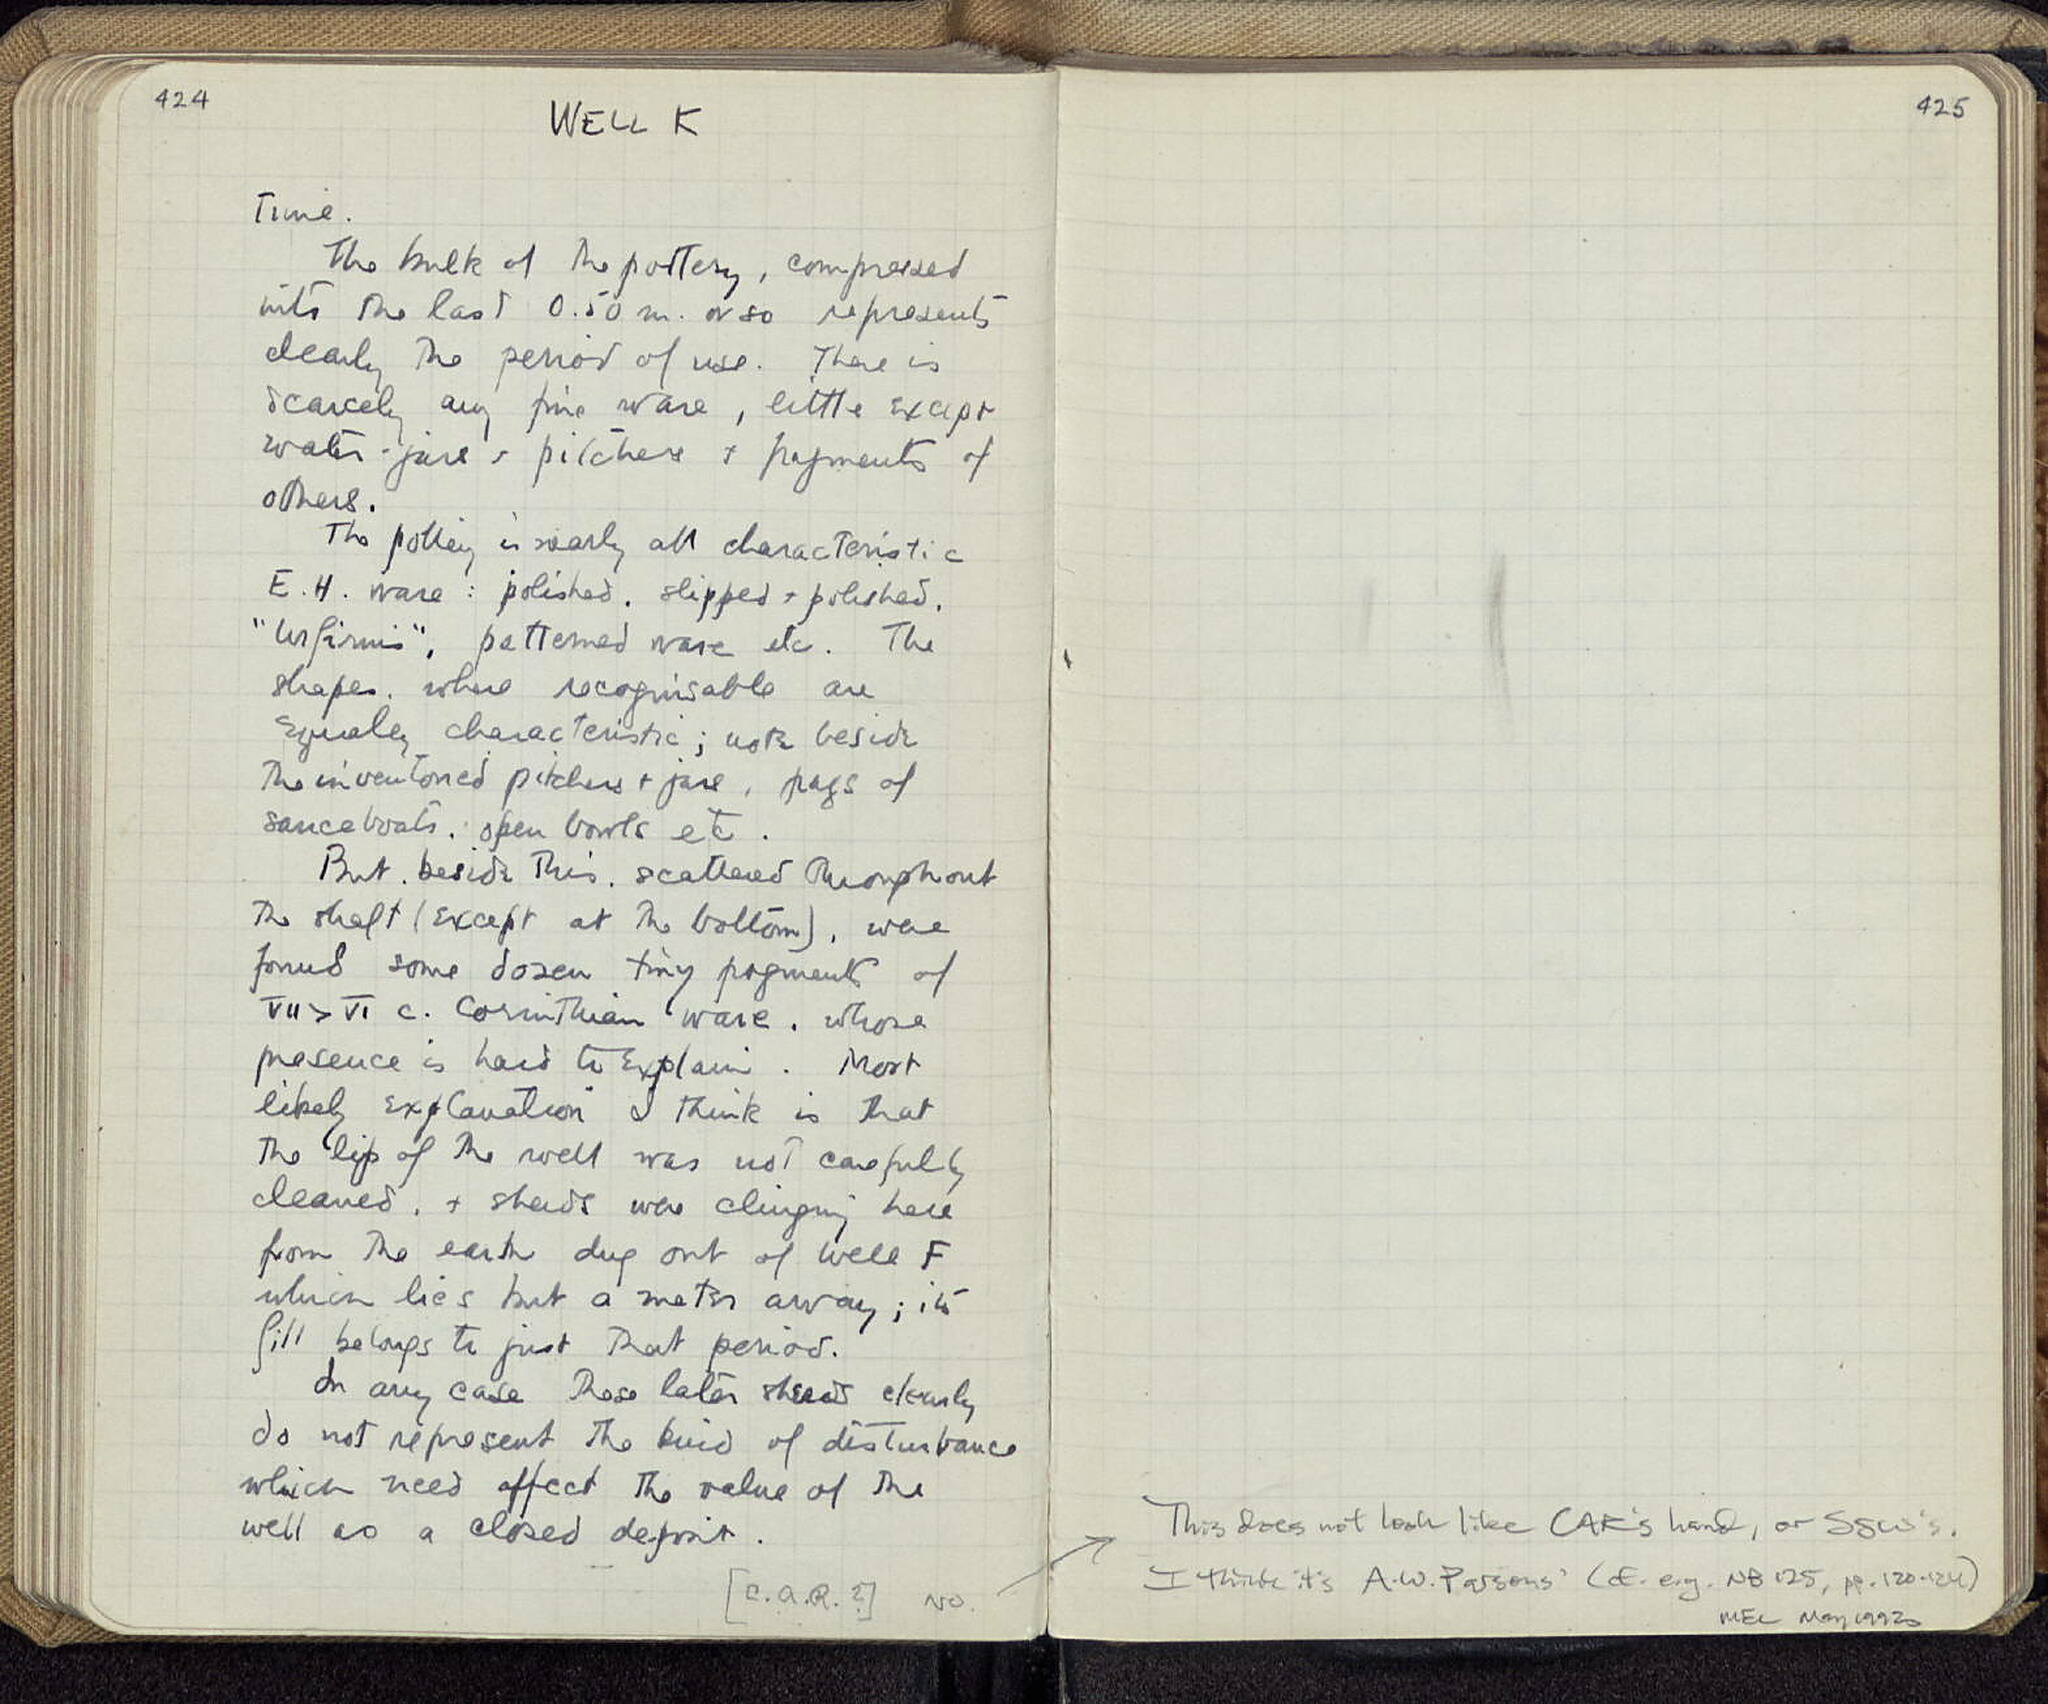 424
WELL K
Time.
The bulk of the pottery, compressed
into the last 0.50 m. or so represents
clearly the period of use. There is
scarcely any fine ware, little except
water-jars + pitchers + fragments of
others.
The pottery is nearly all characteristic
E.H. ware: polished, slipped + polished,
"Urfirnis", patterned ware etc. The
shapes, where recognisable are
equally characteristic; note beside
the inventoried pitchers + jars, frags of
sauceboats, open bowls etc.
But, beside this, scattered throughout
the shaft (except at the bottom), were
found some dozen tiny fragments of
VII > VI c. Corinthian ware, whose
presence is hard to explain. Most
likely explanation I think is that
the lip of the well was not carefully
cleaned, + sherds were clinging here
from the earth dug out of Well F
which lies but a meter away; its
fill belongs to just that period.
In any case these later sherds clearly
do not represent the kind of disturbance
which need affect the value of the
well as a closed deposit.
[C.A.R.?] NO.
425
This does not look like CAR's hand, or SSW's.
I think it's A.W. Parsons' (cf. e.g. NB 125, pp. 120-124)
MEL May 1992